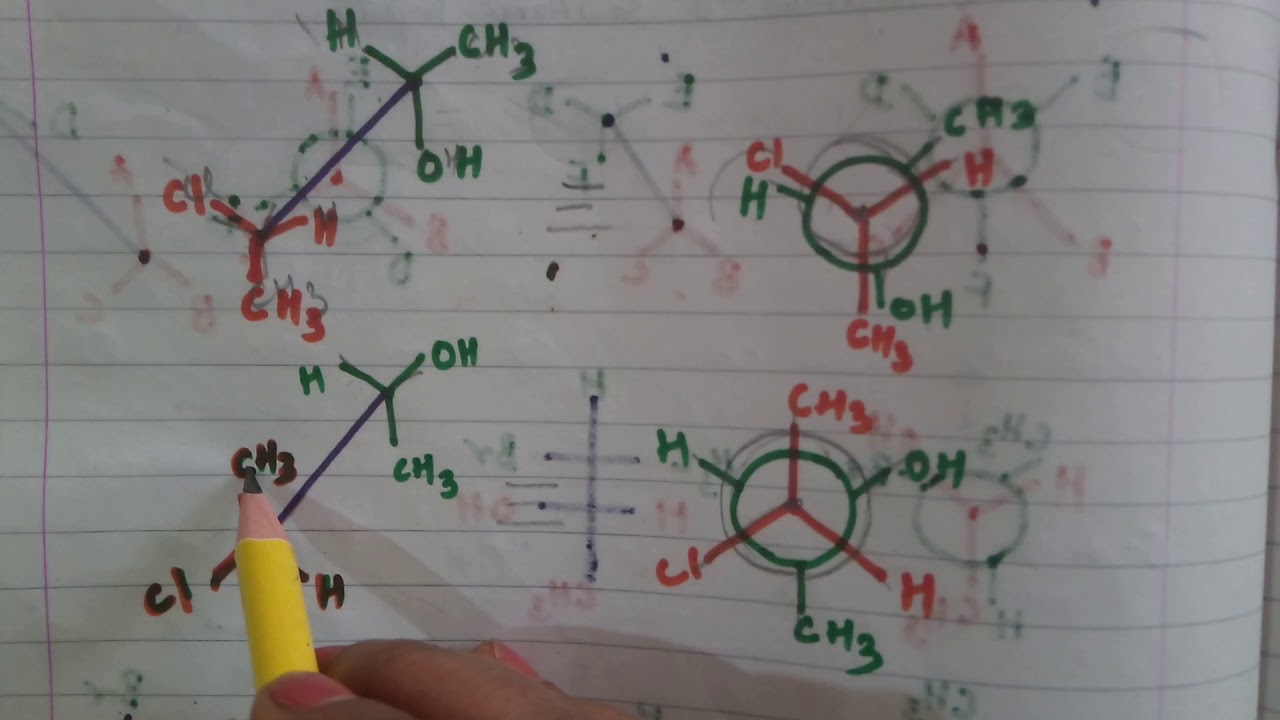 H CH3
OH
Cl H
CH3
CH3
Cl H
H
OH
CH3
H OH
CH3
CH3
Cl H
CH3
H OH
Cl H
CH3